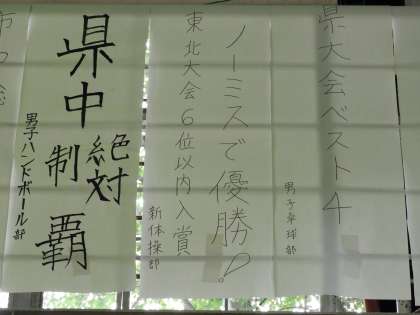 県大会ベスト4
男子卓球部
ノーミスで優勝!
東北大会6位以内入賞
新体操部
県中
絶対
制覇
男子ハンドボール部